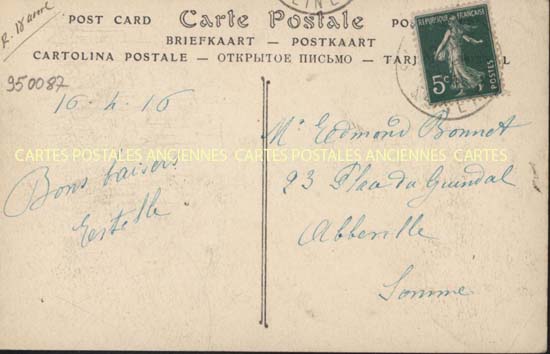 POST CARD Carte Postale
BRIEFKAART — POSTKAART
CARTOLINA POSTALE — ОТКРЫТОЕ ПИСЬМО — TARJ
RÉPUBLIQUE FRANÇAISE
5c
POSTES
950087
16.4.16
Bons baisers
Estelle
Mr Edmond Bonnet
23 Place du Guindal
Abbeville
Somme
CARTES POSTALES ANCIENNES CARTES POSTALES ANCIENNES CARTES